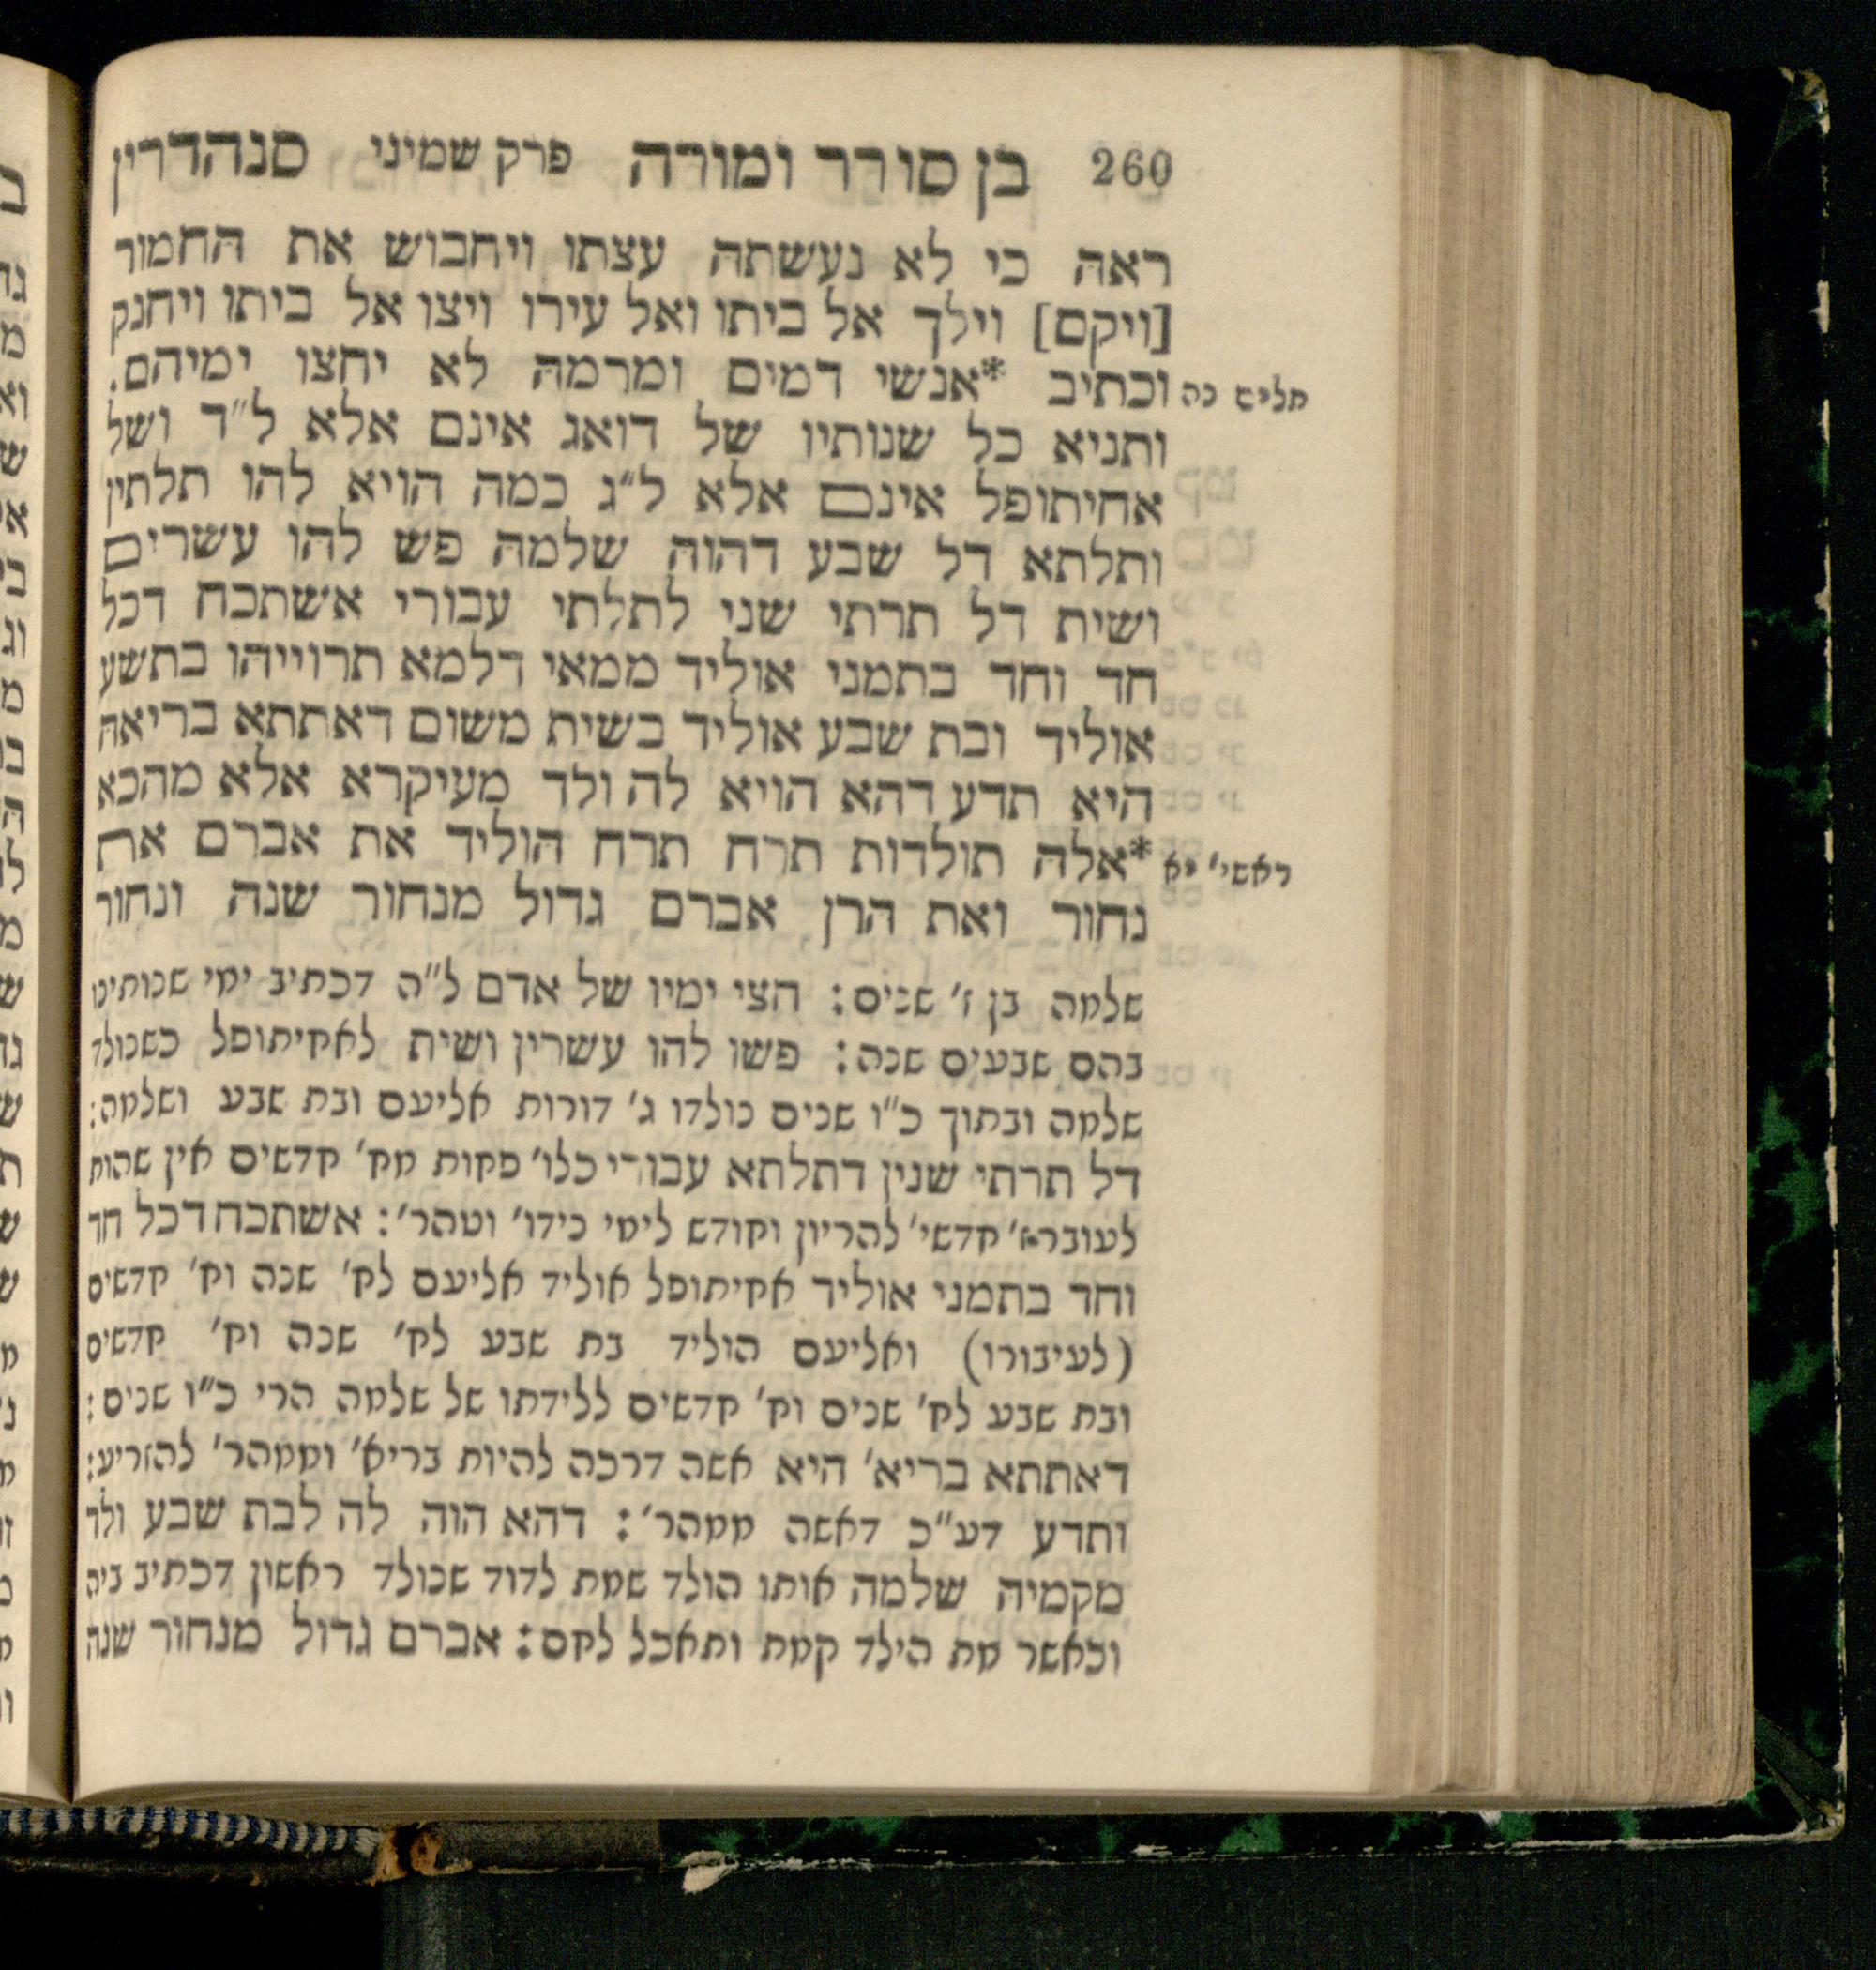 260 בן סורר ומורה פרק שמיני סנהדרין
ראה כי לא נעשתה עצתו ויחבוש את החמור
[ויקם] וילך אל ביתו ואל עירו ויצו אל ביתו ויחנק
תלים נה וכתיב *אנשי דמים ומרמה לא יחצו ימיהם.
ותניא כל שנותיו של דואג אינם אלא ל״ד ושל
אחיתופל אינם אלא ל״ג כמה הויא להו תלתין
ותלתא דל שבע דהוה שלמה פש להו עשרים
ושית דל תרתי שני לתלתי עבורי אשתכח דכל
חד וחד בתמני אוליד ממאי דלמא תרוייהו בתשע
אוליד ובת שבע אוליד בשית משום דאתתא בריאה
היא תדע דהא הויא לה ולד מעיקרא אלא מהכא
ראשי׳ יא *אלה תולדות תרח תרח הוליד את אברם את
נחור ואת הרן אברם גדול מנחור שנה ונחור
שלמה בן ז׳ שנים: חצי ימיו של אדם ל״ה דכתיב ימי שנותינו
בהם שבעים שנה: פשו להו עשרין ושית לאחיתופל כשנולד
שלמה ובתוך כ״ו שנים נולדו ג׳ דורות אליעם ובת שבע ושלמה:
דל תרתי שנין דתלתא עבורי כלו׳ פחות מח׳ חדשים אין שהות
לעובר ז׳ חדשי׳ להריון וחודש לימי נידו׳ וטהר׳: אשתכח דכל חד
וחד בתמני אוליד אחיתופל אוליד אליעם לח׳ שנה וח׳ חדשים
(לעיבורו) ואליעם הוליד בת שבע לח׳ שנה וח׳ חדשים
ובת שבע לח׳ שנים וח׳ חדשים ללידתו של שלמה הרי כ״ו שנים:
דאתתא בריא׳ היא אשה דרכה להיות בריא׳ וממהר׳ להזריע:
ותדע דע״כ דאשה ממהר׳: דהא הוה לה לבת שבע ולד
מקמיה שלמה אותו הולד שמת לדוד שנולד ראשון דכתיב ביה
וכאשר מת הילד קמת ותאכל לחם: אברם גדול מנחור שנה